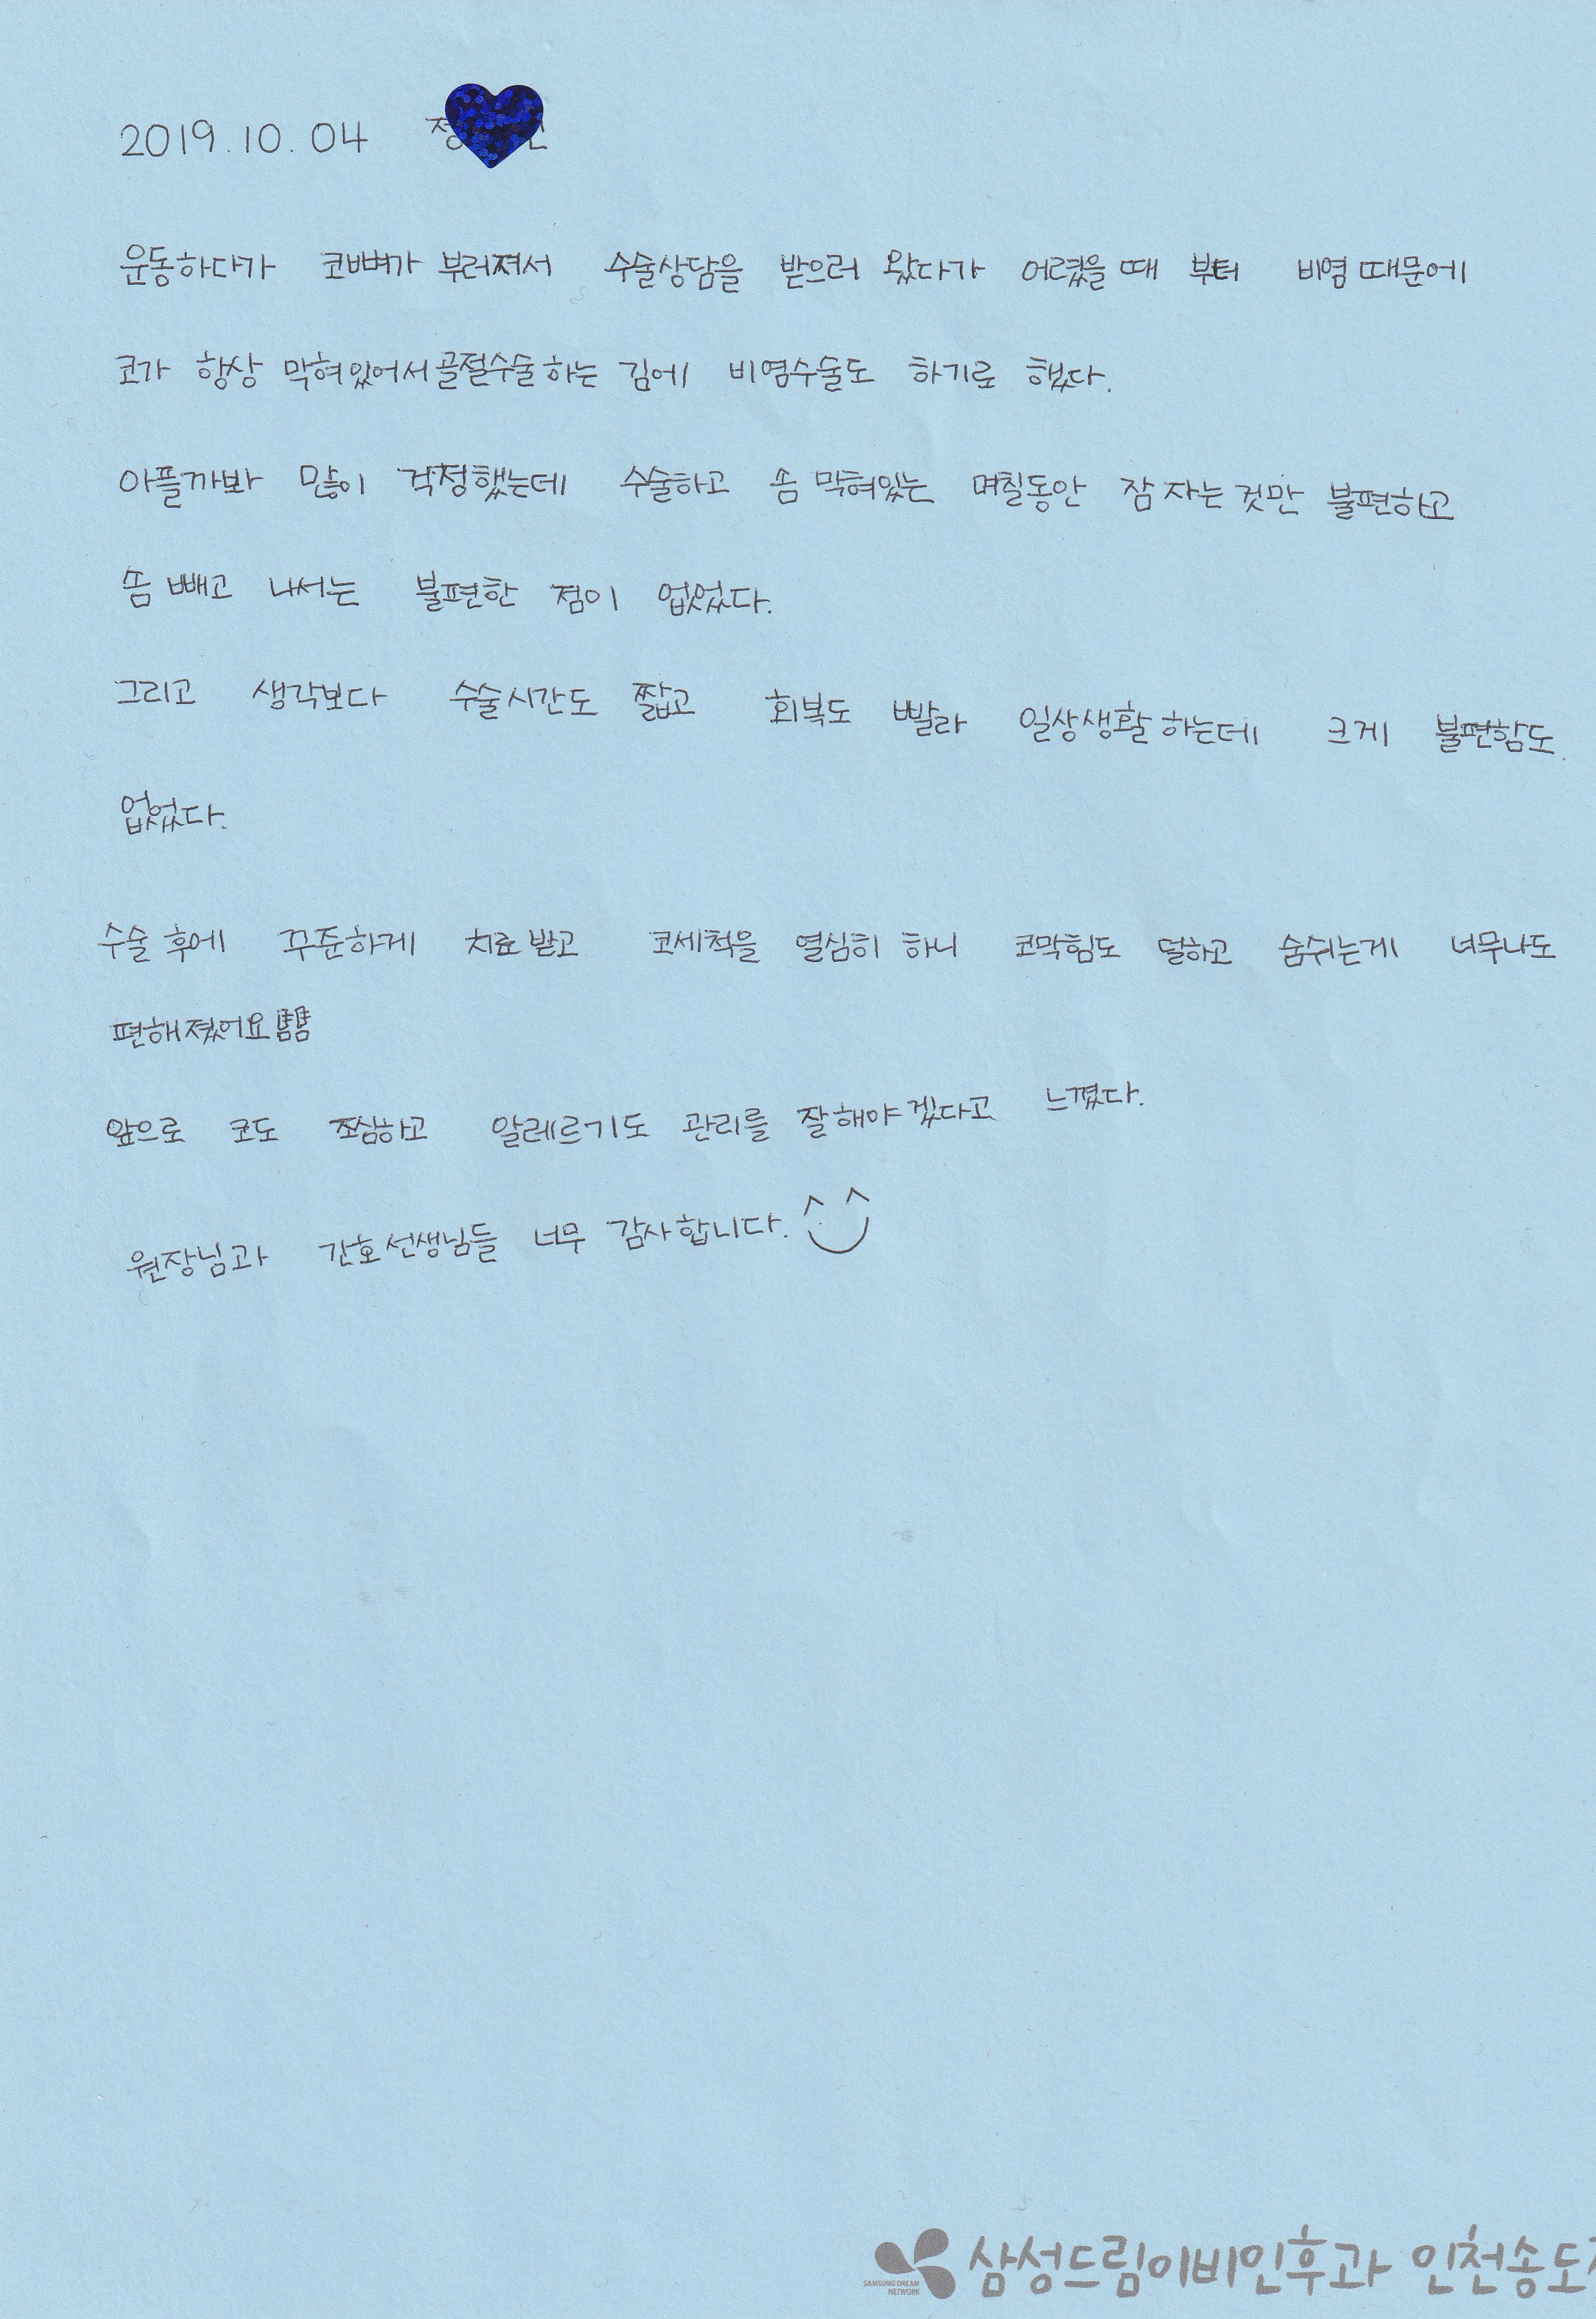 2019.10.04 정
운동하다가 코뼈가 부러져서 수술상담을 받으러 왔다가 어렸을 때 부터 비염 때문에
코가 항상 막혀있어서 골절수술 하는 김에 비염수술도 하기로 했다.
아플까봐 많이 걱정했는데 수술하고 솜 막혀있는 며칠동안 잠 자는 것만 불편하고
솜 빼고 나서는 불편한 점이 없었다.
그리고 생각보다 수술시간도 짧고 회복도 빨라 일상생활 하는데 크게 불편함도
없었다.
수술 후에 꾸준하게 치료받고 코세척을 열심히 하니 코막힘도 덜하고 숨쉬는게 너무나도
편해졌어요
앞으로 코도 조심하고 알레르기도 관리를 잘해야겠다고 느꼈다.
원장님과 간호선생님들 너무 감사합니다.
SAMSUNG DREAM
NETWORK
삼성드림이비인후과 인천송도